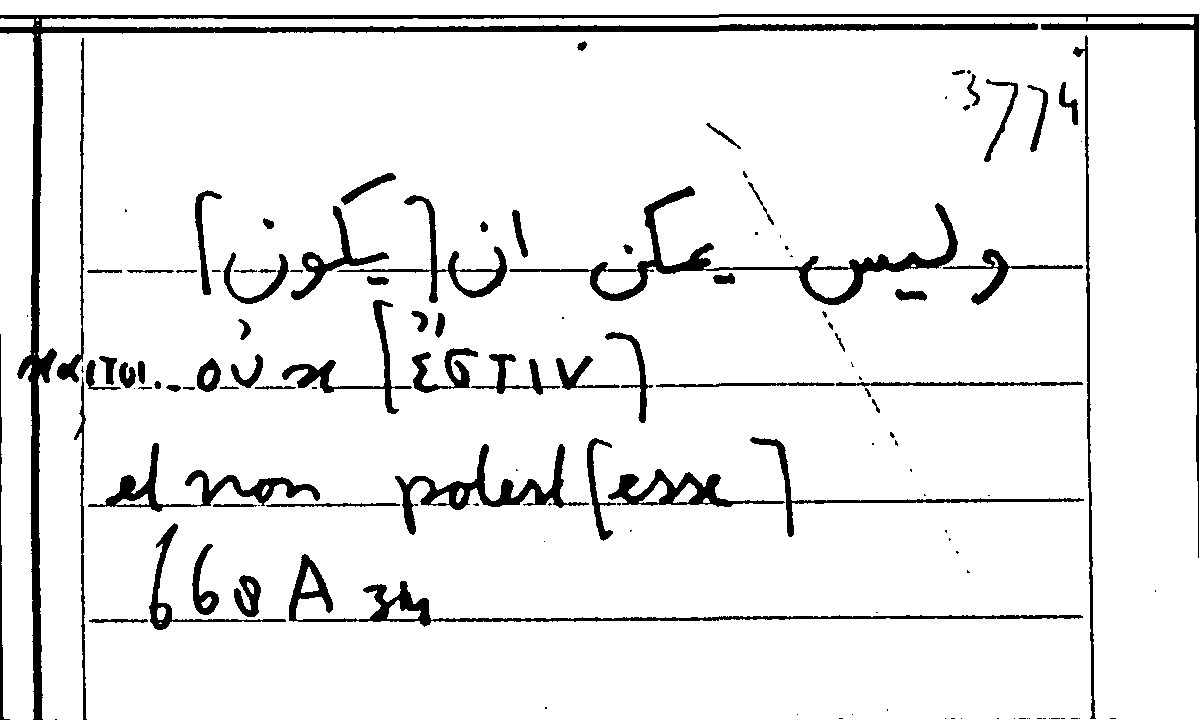 3774
وليس يمكن ان [يكون]
καιτοι.. οὐκ [ἔστιν]
et non potest [esse]
668A 34